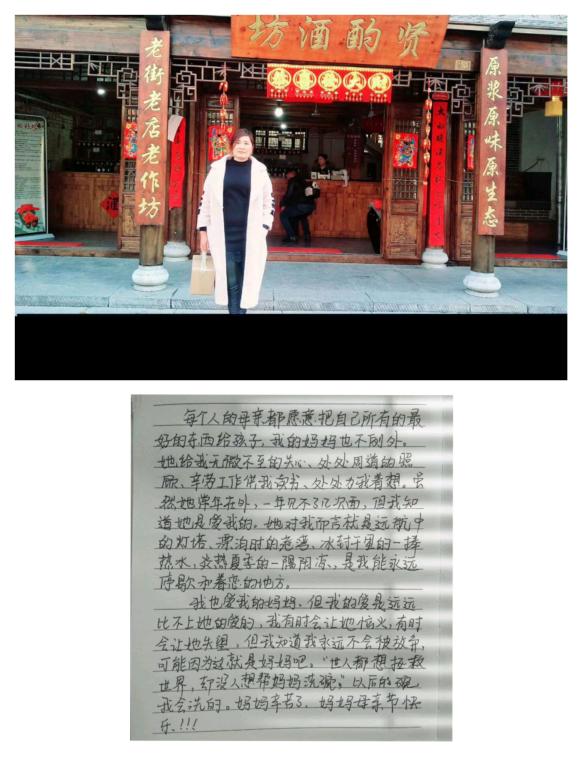 贤酌酒坊
恭喜發大财
老街老店老作坊
原浆原味原生态
每个人的母亲都愿意把自己所有的最
好的东西给孩子,我的妈妈也不例外。
她给我无微不至的关心、处处周道的照
顾、辛劳工作供我读书、处处为我着想,虽
然她常年在外,一年见不了几次面,但我知
道她是爱我的。她对我而言就是远航中
的灯塔、漂泊时的港湾、冰封千里的一捧
热水,炎热夏季的一隅阴凉,是我能永远
停歇和眷恋的地方。
我也爱我的妈妈,但我的爱是远远
比不上她的爱的,我有时会让她恼火,有时
会让她失望,但我知道我永远不会被放弃,
可能因为这就是妈妈吧。“世人都想拯救
世界,却没人想帮妈妈洗碗。”以后的碗
我会洗的。妈妈辛苦了,妈妈母亲节快
乐!!!